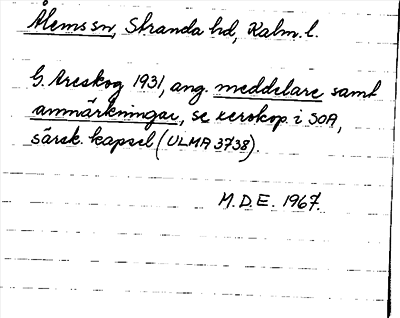 Ålems sn, Stranda hd, Kalm. l.
G. Areskog 1931, ang. meddelare samt
anmärkningar, se xerokop. i SOA,
särsk. kapsel (ULMA 3738).
M.D.E. 1967.